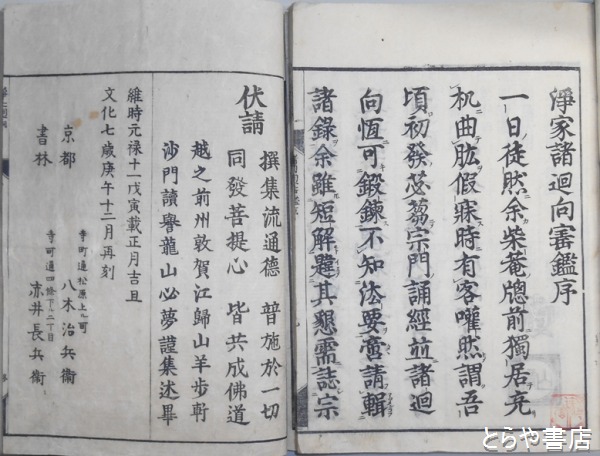 淨家諸迴向審鑑序
一日徒然余柴菴牕前獨居充
机曲肱假寐時有客嚾然謂吾
頃初發苾蒭宗門誦經並諸迴
向恆可鍛鍊不知法要齎請輯
諸錄余雖短解難其懇需誌宗
伏請
撰集流通德 普施於一切
同發菩提心 皆共成佛道
越之前州敦賀江歸山羊步軒
沙門讀譽龍山必夢謹集述畢
維時元祿十一戊寅載正月吉旦
文化七歲庚午十二月再刻
京都
書林
寺町通松原上ル町
八木治兵衞
寺町通四條下ル二丁目
赤井長兵衞
とらや書店